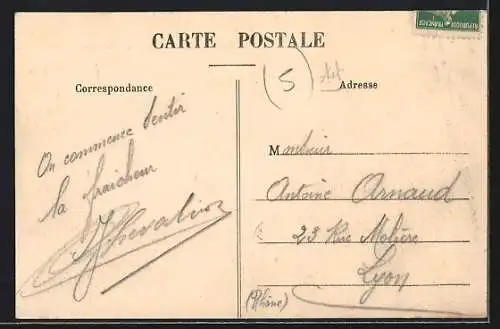 CARTE POSTALE
Correspondance
Adresse
(5)
On commence sentir
la fraicheur
JChevalier
Monsieur
Antoine Arnaud
23 Rue Molière
Lyon
(Rhône)